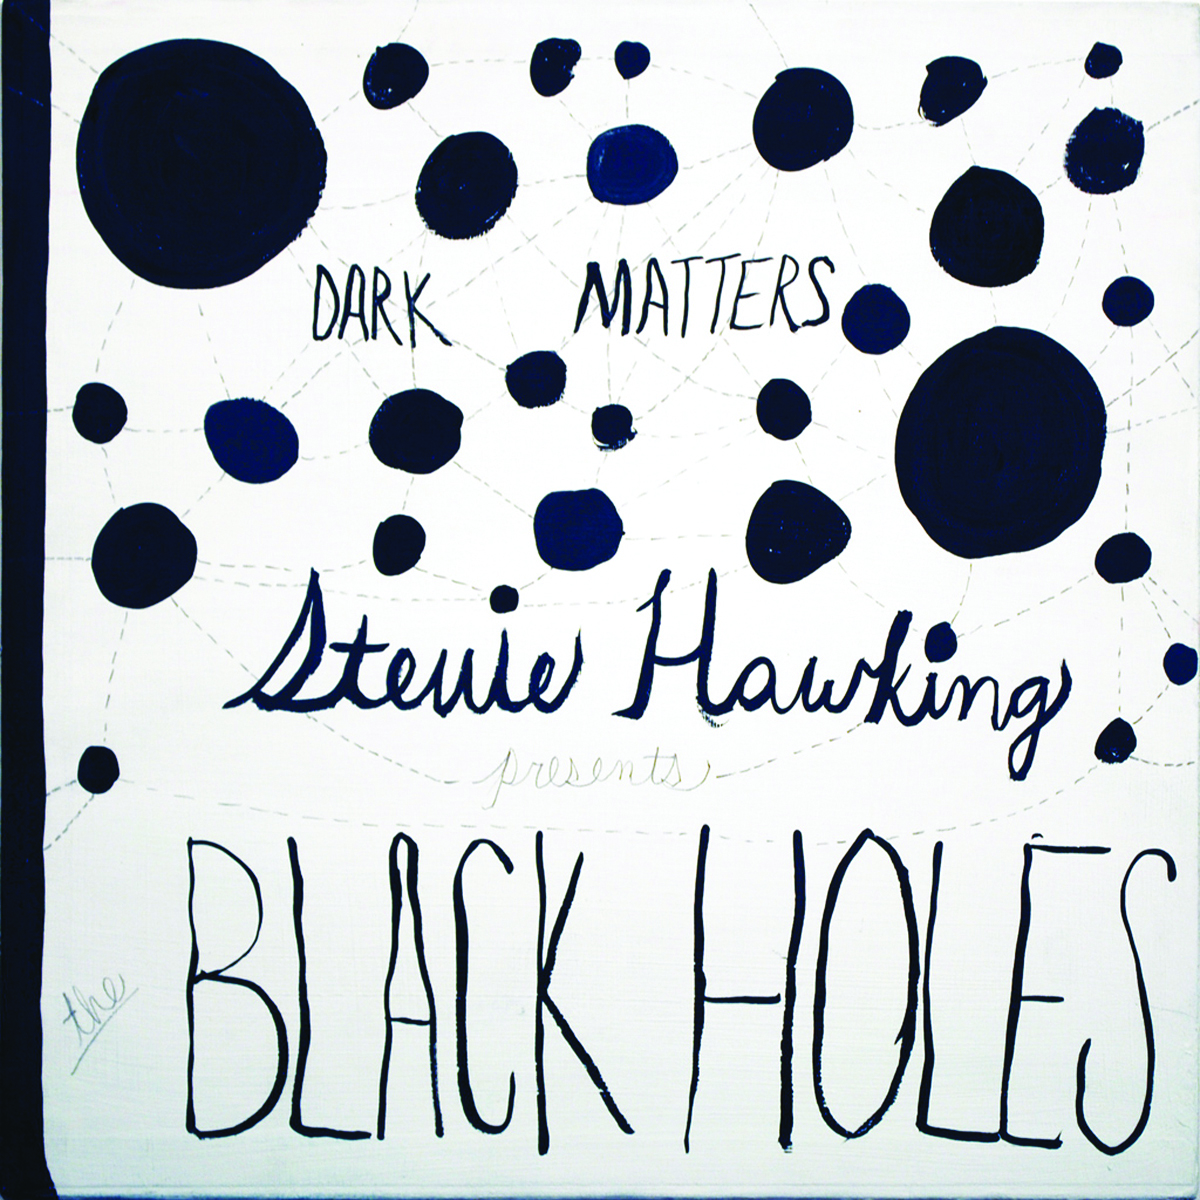 DARK MATTERS
Stevie Hawking
presents
the
BLACK HOLES